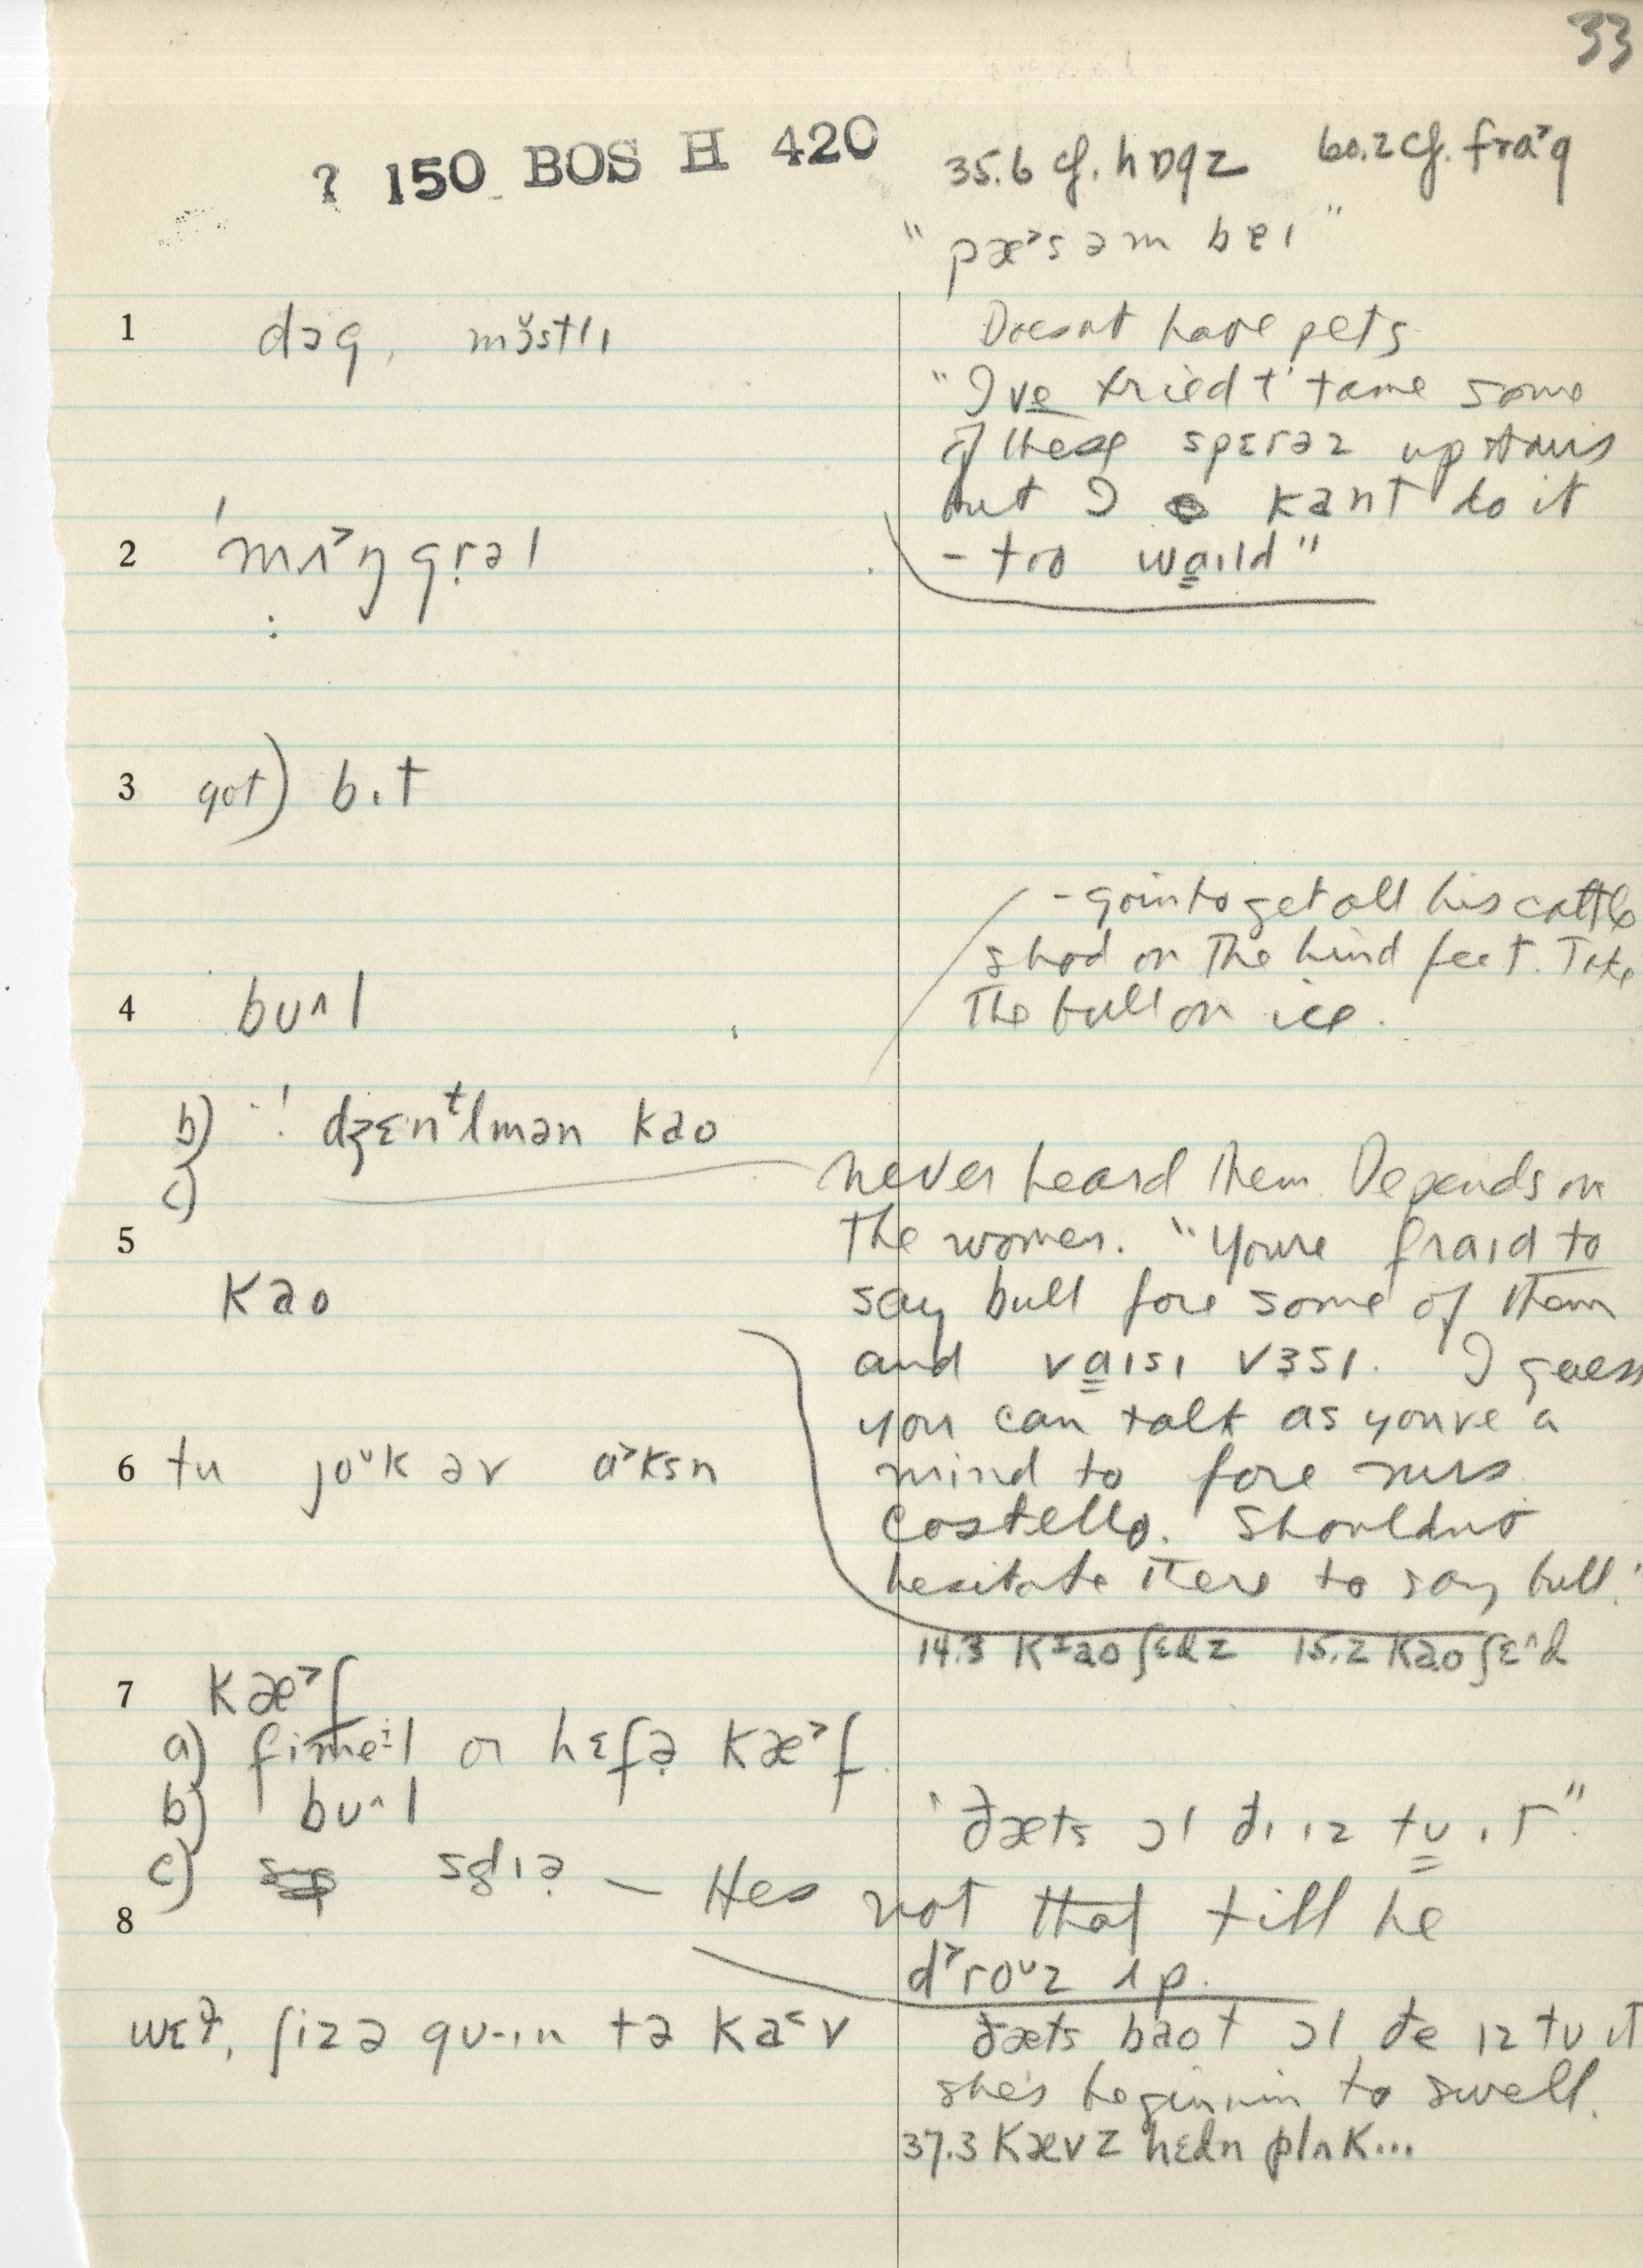 33
? 150 BOS H 420
35.6 cf. hɒgz 60.2 cf. frɑ˃g
"pæ˃səm beɪ"
1 dɔg, mɜ̆stlɪ
Doesnt have pets
"I've tried t' tame some
of these spɛrəz upstairs
but I kant do it
- too waɪld"
2 'mʌ˃ŋgrəl
3 got) bɪt
- goin to get all his cattle
shod on the hind feet. Take
the bull on ice.
4 bu^l
b) ! dʒɛnᵗlmən kao
c)
never heard them Depends on
the women. "Youre fraɪd to
say bull fore some of them
and vaɪsɪ vɜsɪ. I guess
you can talk as youve a
mind to fore mrs
Costello. Shouldnt
hesitate there to say bull."
5 kao
6 tu joᶷk əv ɑ˃ksn
14.3 kᶦaoʃɛdz 15.2 kaoʃɛ^d
7 kæ˃f
a) fimeɪl or hɛfə kæ˃f
b) bu^l
c) sdɪə – Hes not that till he
dˀroᶷz ʌp.
"ðæts ɔl ðɪ ɪz tu ɪt".
8 wɛl, ʃiz ə gu-ɪn tə ka˂v
ðæts baot ɔl ðe ɪz tu ɪt
she's beginnin to swell.
37.3 kævz hɛdn plʌk...